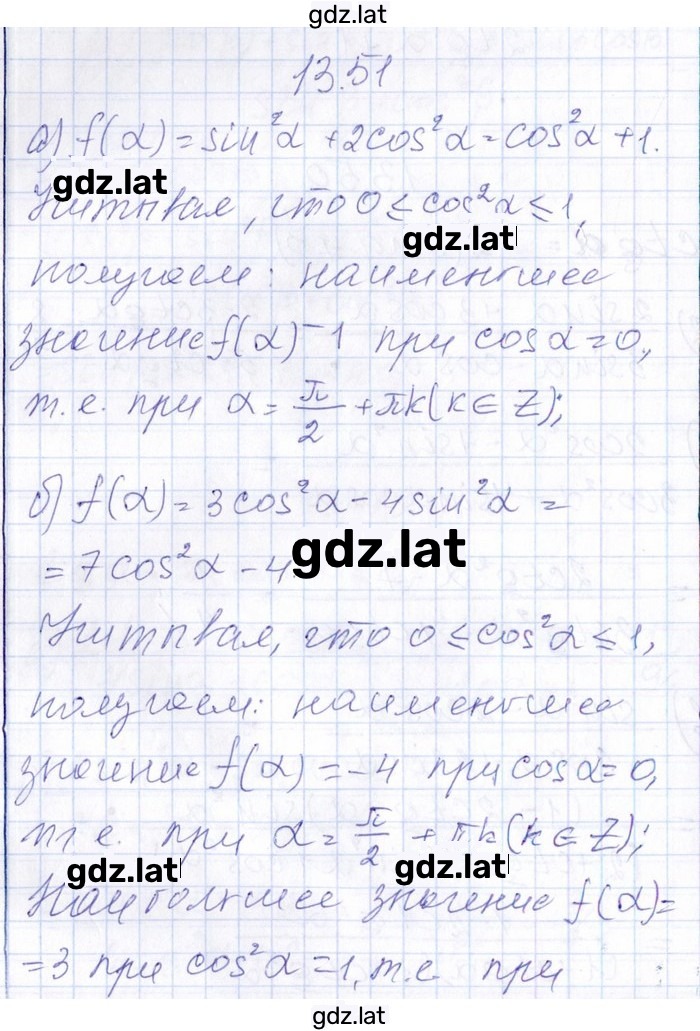 gdz.lat
13.51
а) f(α) = sin²α + 2cos²α = cos²α + 1.
gdz.lat
Учитывая, что 0 ≤ cos²α ≤ 1,
gdz.lat
получаем: наименьшее
значение f(α) – 1 при cos α = 0,
т.е. при α = π/2 + πk (k ∈ Z);
б) f(α) = 3cos²α – 4sin²α =
gdz.lat
= 7cos²α – 4
Учитывая, что 0 ≤ cos²α ≤ 1,
получаем: наименьшее
значение f(α) = –4 при cos α = 0,
т.е. при α = π/2 + πk (k ∈ Z);
gdz.lat gdz.lat
Наибольшее значение f(α) =
= 3 при cos²α = 1, т.е при
gdz.lat